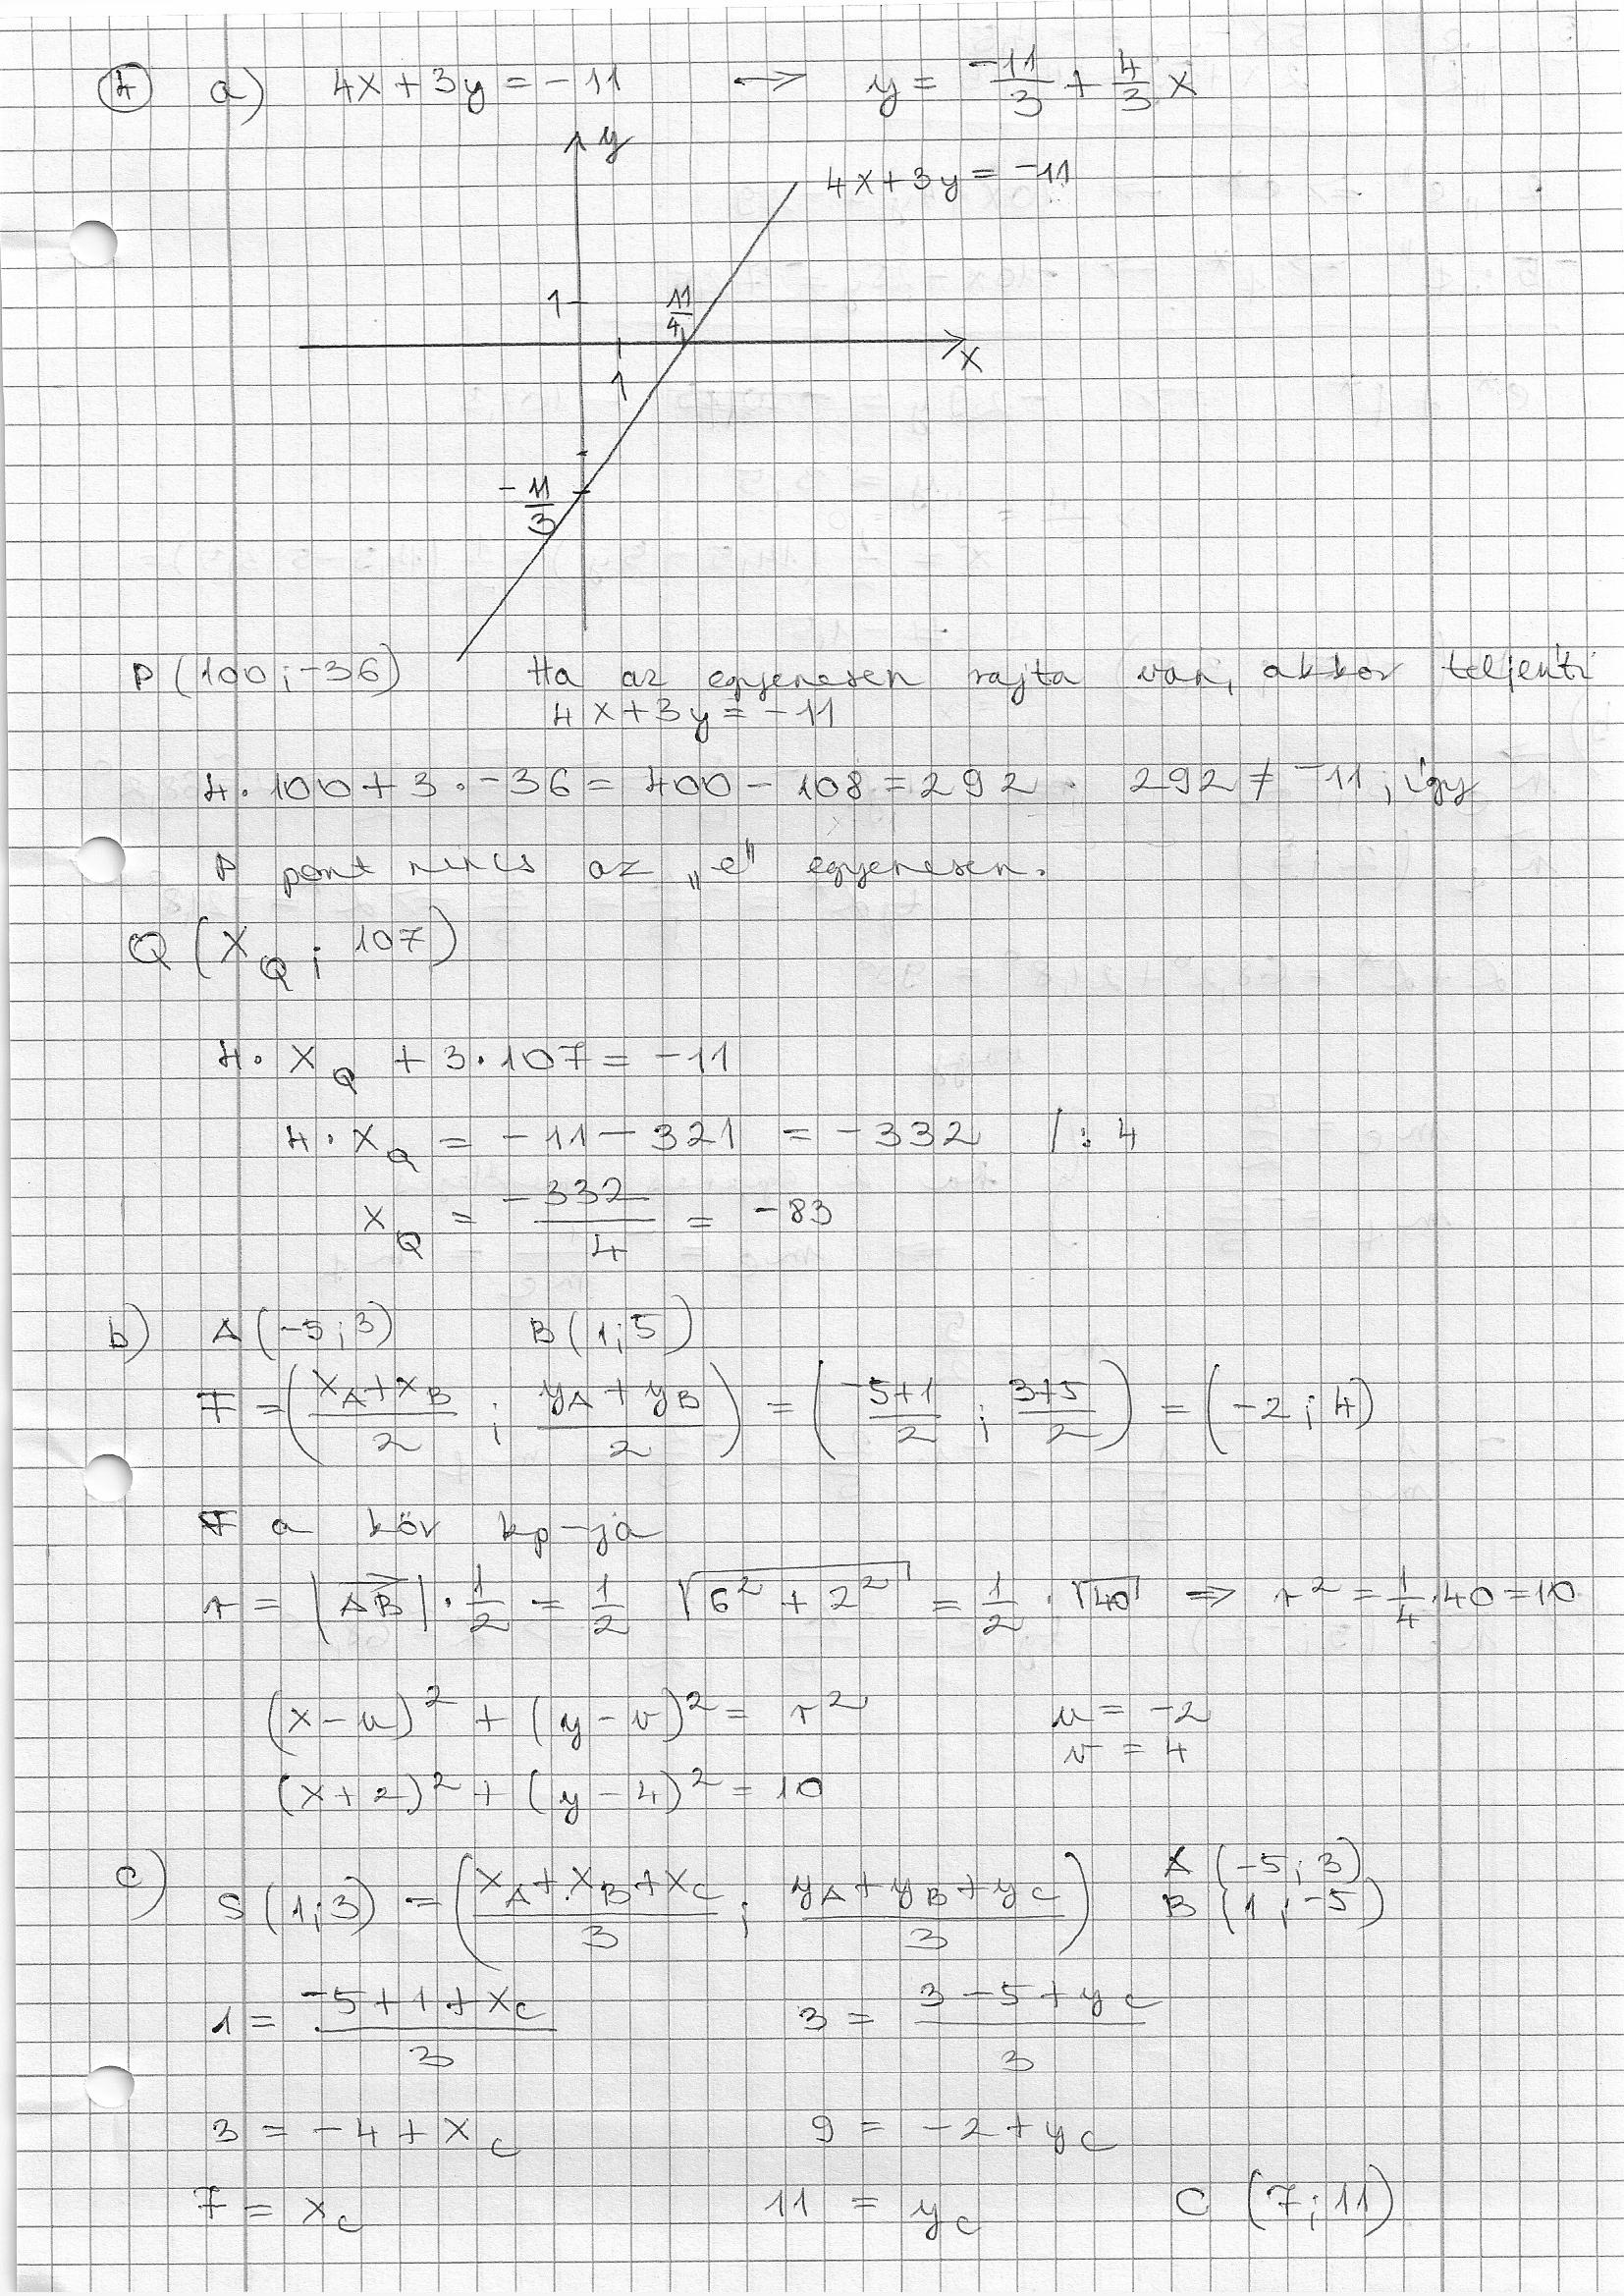 ④ a) 4x + 3y = -11 → y = -11/3 + 4/3 x
y
4x + 3y = -11
1
11/4
x
1
-11/3
P (100 ; -36) Ha az egyenesen rajta van, akkor teljesíti
4x + 3y = -11
4 · 100 + 3 · -36 = 400 - 108 = 292 292 ≠ -11, így
P pont nincs az „e" egyenesen.
Q (x_Q ; 107)
4 · x_Q + 3 · 107 = -11
4 · x_Q = -11 - 321 = -332 / : 4
x_Q = -332/4 = -83
b) A (-5 ; 3) B (1 ; 5)
F = ((x_A + x_B)/2 ; (y_A + y_B)/2) = ((-5+1)/2 ; (3+5)/2) = (-2 ; 4)
F a kör kp-ja
r = |AB→| · 1/2 = 1/2 √(6² + 2²) = 1/2 · √40 ⇒ r² = 1/4 · 40 = 10
(x - u)² + (y - v)² = r² u = -2
v = 4
(x + 2)² + (y - 4)² = 10
c) S (1 ; 3) = ((x_A + x_B + x_C)/3 ; (y_A + y_B + y_C)/3) A (-5 ; 3)
B (1 ; -5)
1 = (-5 + 1 + x_C)/3 3 = (3 - 5 + y_C)/3
3 = -4 + x_C 9 = -2 + y_C
7 = x_C 11 = y_C C (7 ; 11)